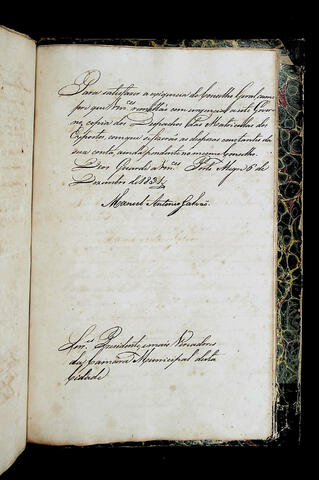 Para satisfazer a exigencia do Conselho Geral cum
pre que Vm.ces remettão com urgencia a este Gover
no, copia dos Despachos das Matriculas dos
Expostos, com que se fizerão as despezas constantes da
sua conta, ainda pendente no mesmo Conselho.
Deos Guarde a Vm.ces Porto Alegre 6 de
Dezembro de 1831
Manoel Antonio Galvão.
Snr.es Presidente, e mais Vereadores
da Camara Municipal desta
Cidade